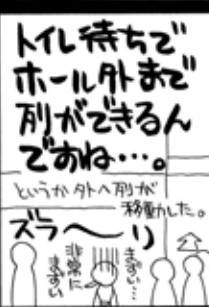 トイレ待ちで
ホール外まで
列ができるん
ですね…。
というか外へ列が
移動した。
ズラ～リ
まずい…
非常に
まずい